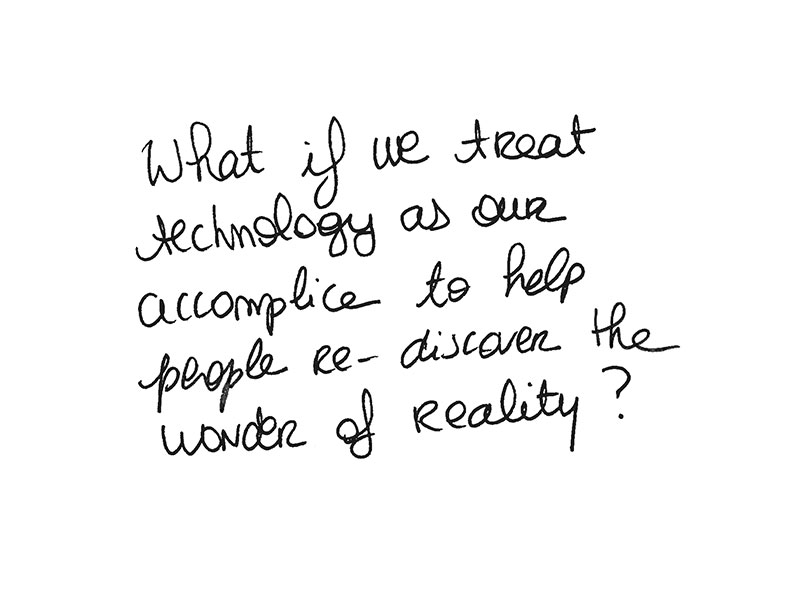 What if we treat
technology as our
accomplice to help
people re-discover the
wonder of reality?